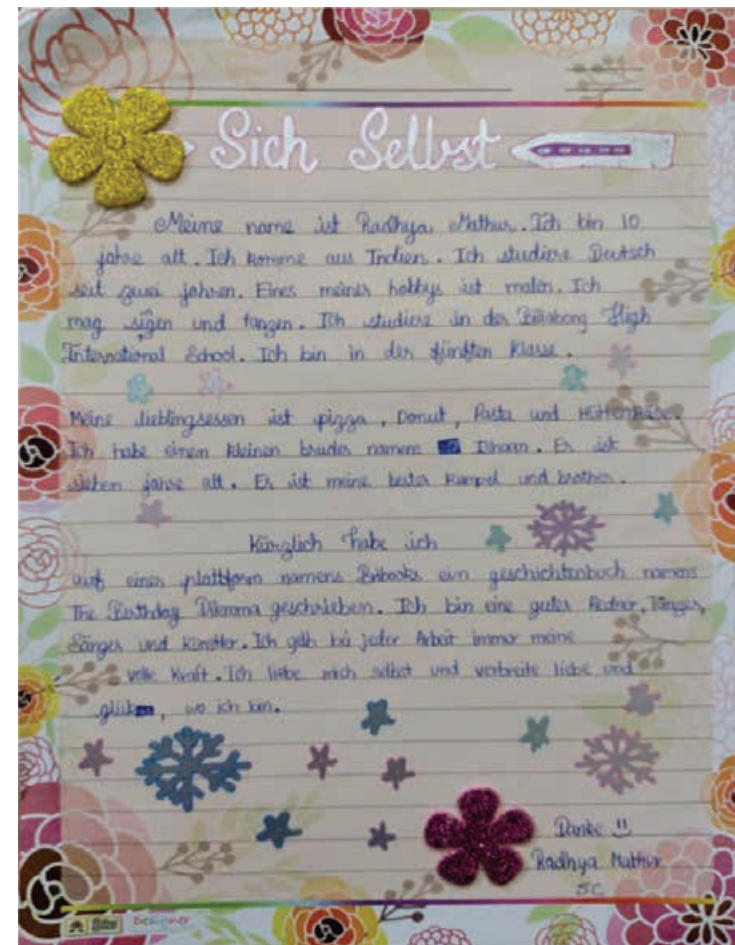 Sich Selbst
Meine name ist Radhya Mathur. Ich bin 10
jahre alt. Ich komme aus Indien. Ich studiere Deutsch
seit zwei jahren. Eines meiner hobbys ist malen. Ich
mag sigen und tanzen. Ich studiere in der Billabong High
International School. Ich bin in der fünften Klasse.
Meine lieblingsessen ist pizza, Donut, Pasta und Hüttenkäse.
Ich habe einem kleinen bruder namens Ishaan. Er ist
sieben jahre alt. Er ist meine bester Kumpel und brother.
Kürzlich habe ich
auf einer plattform namens Bribooks ein geschichtenbuch namens
The Birthday Dilemma geschrieben. Ich bin eine guter Redner, Tänzer,
Sänger und Künstler. Ich gib bei jeder Arbeit immer meine
volle Kraft. Ich liebe mich selbst und verbreite liebe und
glük, wo ich bin.
Danke !!
Radhya Mathur
5C